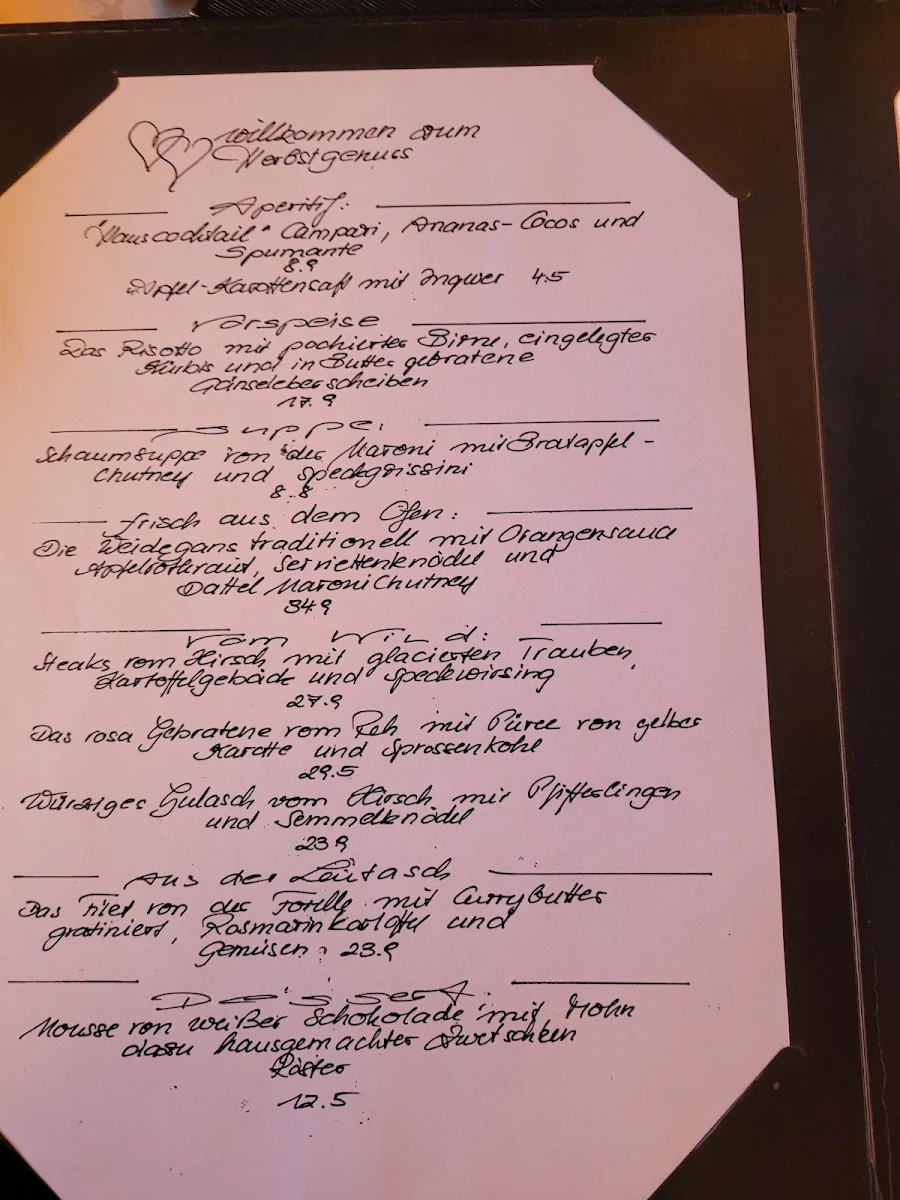 Willkommen zum
Herbstgenuss
Aperitif:
"Hauscocktail" Campari, Ananas-Cocos und
Spumante
8.9
Apfel-Karottensaft mit Ingwer 4.5
Vorspeise
Das Risotto mit pochierter Birne, eingelegter
Kürbis und in Butter gebratene
Gänseleberscheiben
17.9
Suppe:
Schaumsuppe von der Maroni mit Bratapfel-
Chutney und Speckgrissini
8.8
Frisch aus dem Ofen:
Die Weidegans traditionell mit Orangensauce
Apfelrotkraut, Serviettenknödel und
Dattel Maroni Chutney
34.9
Vom Wild:
Steaks vom Hirsch mit glacierten Trauben,
Kartoffelgebäck und Speckwirsing
27.9
Das rosa Gebratene vom Reh mit Püree von gelber
Karotte und Sprossenkohl
29.5
Würziges Gulasch vom Hirsch mit Pfifferlingen
und Semmelknödel
23.9
Aus der Leutasch
Das Filet von der Forelle mit Currybutter
gratiniert, Rosmarinkartoffel und
Gemüsen 23.9
Dessert:
Mousse von weißer Schokolade mit Mohn
dazu hausgemachter Zwetschken
Röster
12.5